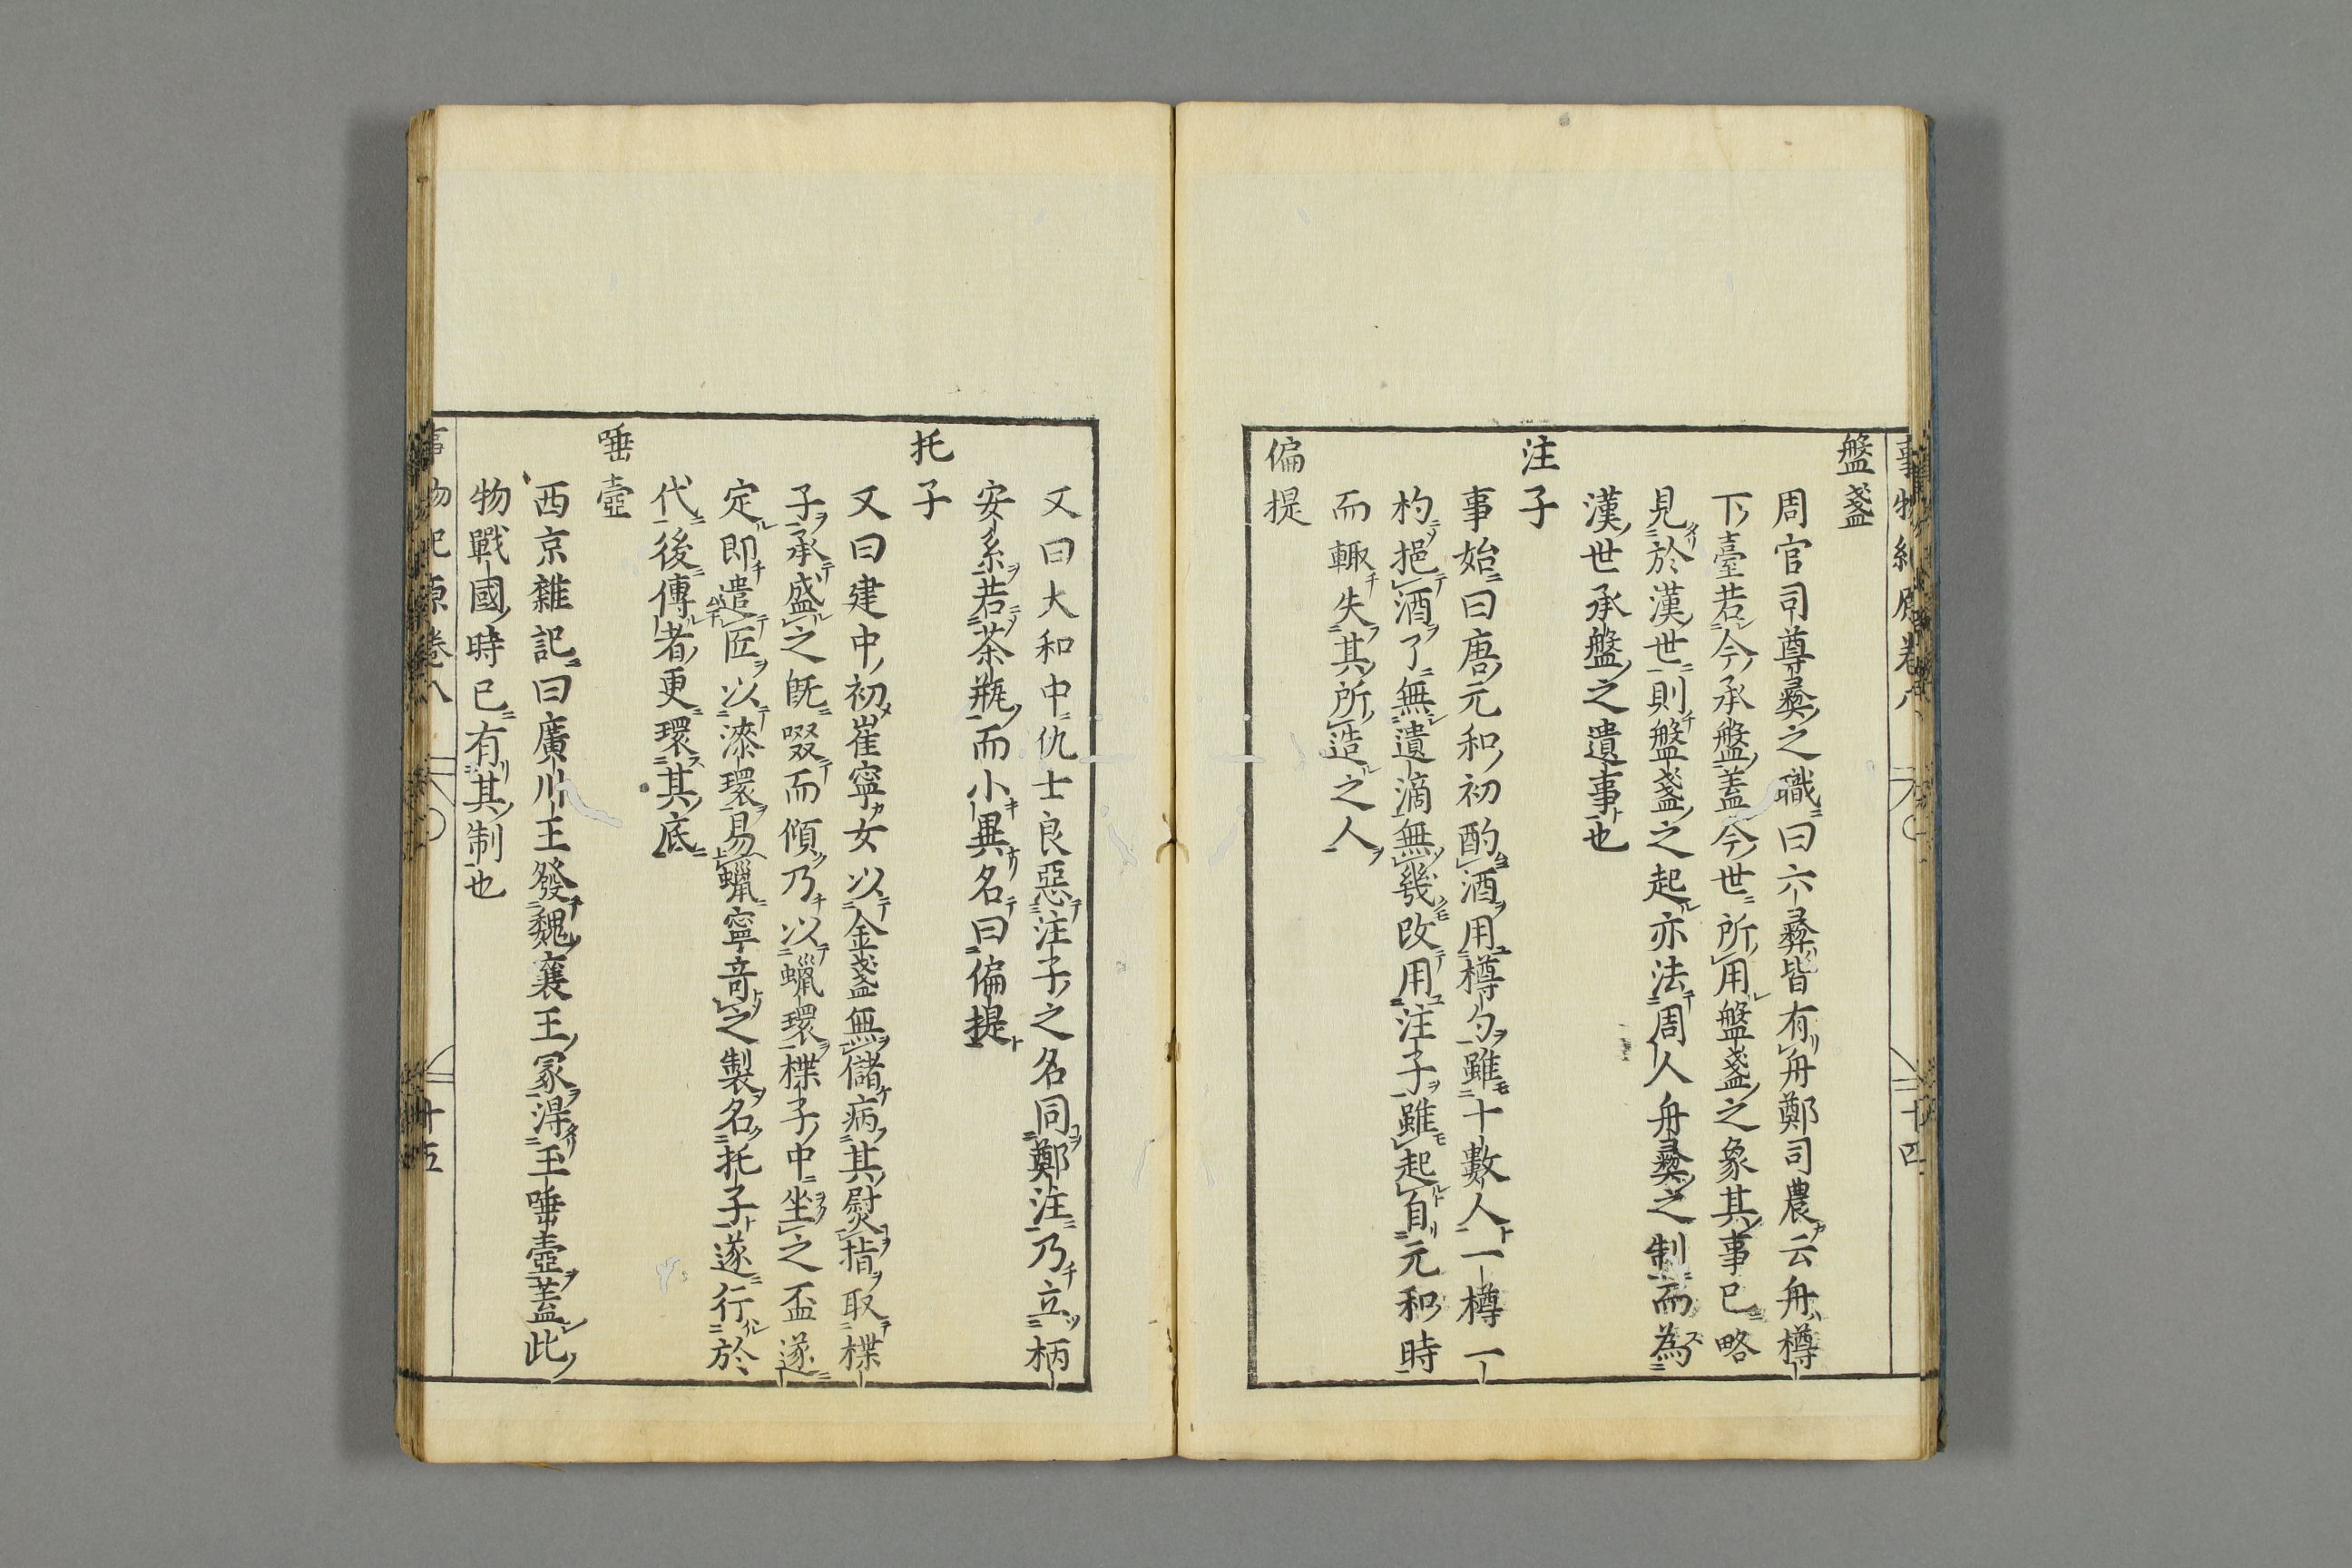 事物紀原卷八 十四
盤盞
周官司尊彞之職曰六彞皆有舟鄭司農云舟樽
下臺若今承盤蓋今世所用盤盞之象其事已略
見於漢世則盤盞之起亦法周人舟彞之制而為
漢世承盤之遺事也
注子
事始曰唐元和初酌酒用樽勺雖十數人一樽一
杓挹酒了無遺滴無幾改用注子雖起自元和時
而輙失其所造之人
偏提
又曰大和中仇士良惡注子之名同鄭注乃立柄
安系若茶瓶而小異名曰偏提
托子
又曰建中初崔寧女以金盞無儲病其熨指取楪
子承盛之既啜而傾乃以蠟環楪子中坐之盃遂
定即遣匠以漆環易蠟寧竒之製名托子遂行於
代後傳者更環其底
唾壺
西京雜記曰廣川王發魏襄王冢淂玉唾壺蓋此
物戰國時已有其制也
事物紀原卷八 十五